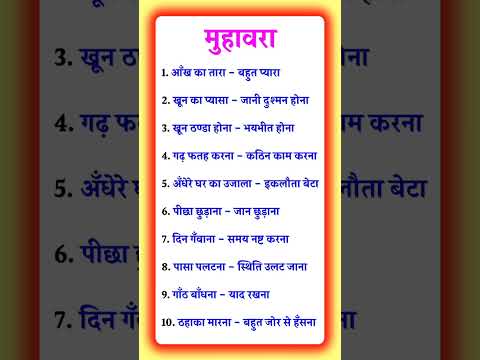 मुहावरा
1. आँख का तारा – बहुत प्यारा
2. खून का प्यासा – जानी दुश्मन होना
3. खून ठण्डा होना – भयभीत होना
4. गढ़ फतह करना – कठिन काम करना
5. अँधेरे घर का उजाला – इकलौता बेटा
6. पीछा छुड़ाना – जान छुड़ाना
7. दिन गँवाना – समय नष्ट करना
8. पासा पलटना – स्थिति उलट जाना
9. गाँठ बाँधना – याद रखना
10. ठहाका मारना – बहुत जोर से हँसना